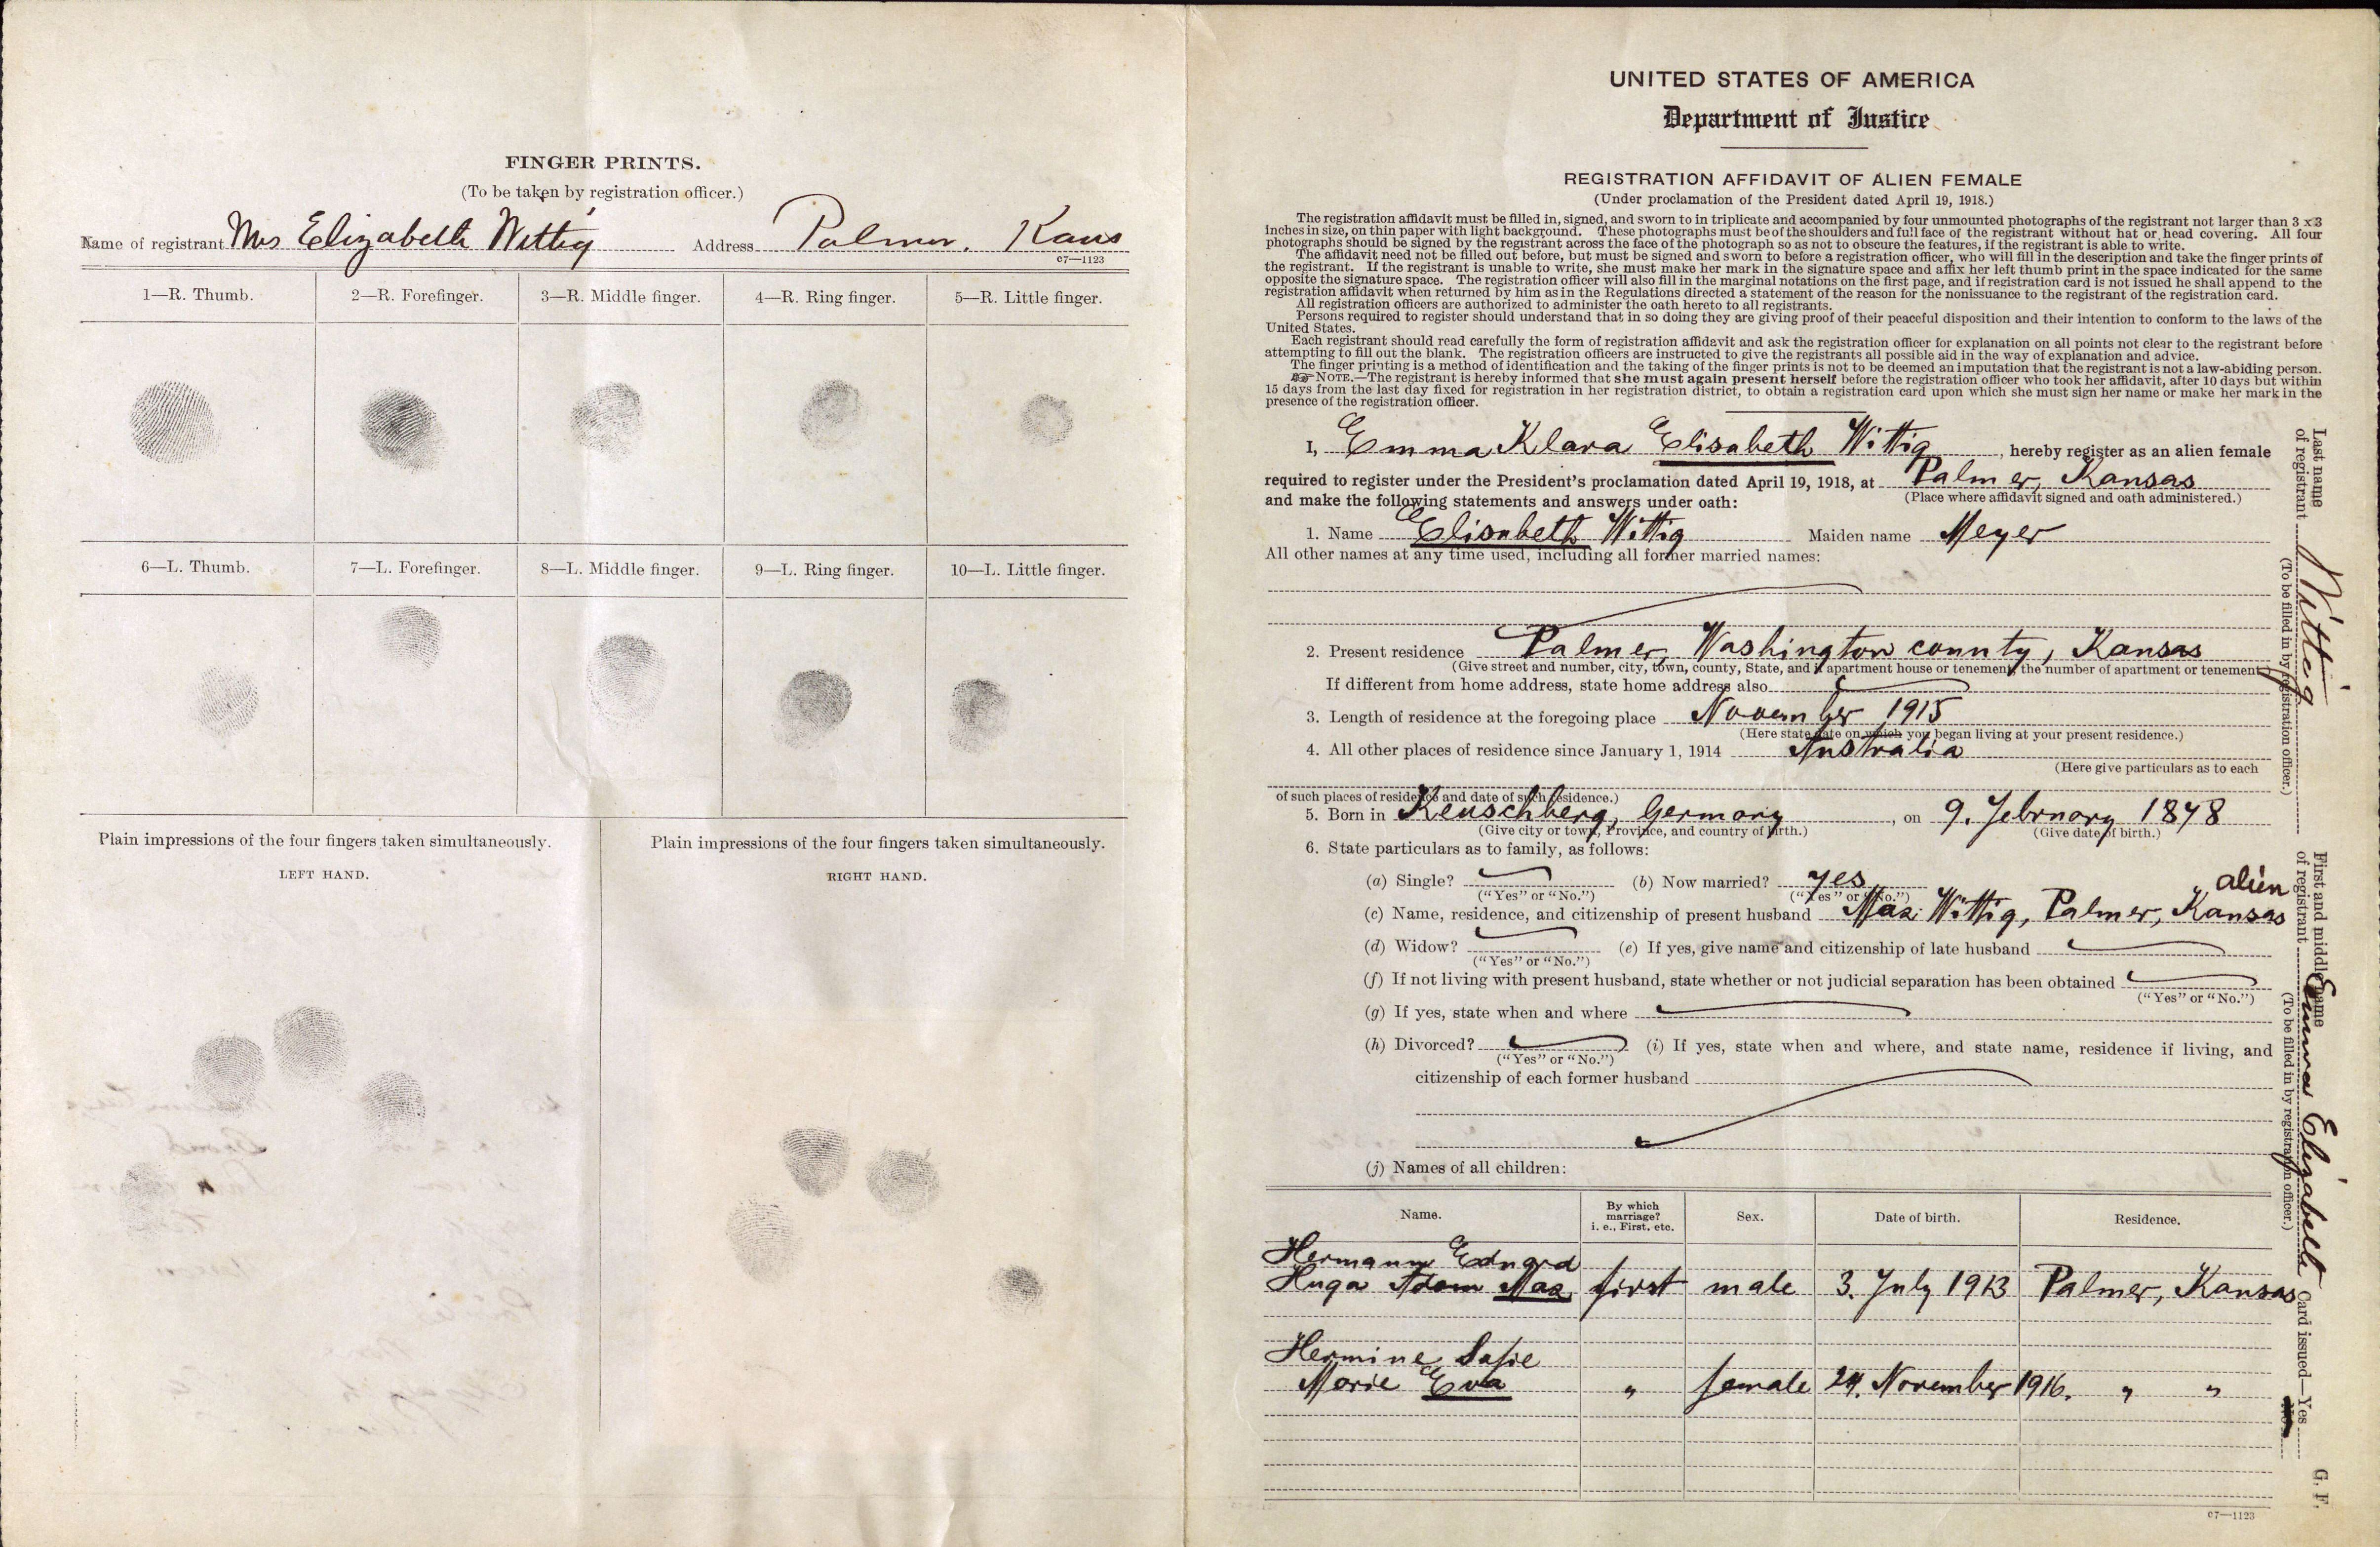 FINGER PRINTS.
(To be taken by registration officer.)
Name of registrant Mrs Elizabeth Wittig Address Palmer, Kans
c7—1123
1—R. Thumb. 2—R. Forefinger. 3—R. Middle finger. 4—R. Ring finger. 5—R. Little finger.
6—L. Thumb. 7—L. Forefinger. 8—L. Middle finger. 9—L. Ring finger. 10—L. Little finger.
Plain impressions of the four fingers taken simultaneously.
LEFT HAND.
Plain impressions of the four fingers taken simultaneously.
RIGHT HAND.
UNITED STATES OF AMERICA
Department of Justice
REGISTRATION AFFIDAVIT OF ALIEN FEMALE
(Under proclamation of the President dated April 19, 1918.)
The registration affidavit must be filled in, signed, and sworn to in triplicate and accompanied by four unmounted photographs of the registrant not larger than 3 x 3
inches in size, on thin paper with light background. These photographs must be of the shoulders and full face of the registrant without hat or head covering. All four
photographs should be signed by the registrant across the face of the photograph so as not to obscure the features, if the registrant is able to write.
The affidavit need not be filled out before, but must be signed and sworn to before a registration officer, who will fill in the description and take the finger prints of
the registrant. If the registrant is unable to write, she must make her mark in the signature space and affix her left thumb print in the space indicated for the same
opposite the signature space. The registration officer will also fill in the marginal notations on the first page, and if registration card is not issued he shall append to the
registration affidavit when returned by him as in the Regulations directed a statement of the reason for the nonissuance to the registrant of the registration card.
All registration officers are authorized to administer the oath hereto to all registrants.
Persons required to register should understand that in so doing they are giving proof of their peaceful disposition and their intention to conform to the laws of the
United States.
Each registrant should read carefully the form of registration affidavit and ask the registration officer for explanation on all points not clear to the registrant before
attempting to fill out the blank. The registration officers are instructed to give the registrants all possible aid in the way of explanation and advice.
The finger printing is a method of identification and the taking of the finger prints is not to be deemed an imputation that the registrant is not a law-abiding person.
☞NOTE.—The registrant is hereby informed that she must again present herself before the registration officer who took her affidavit, after 10 days but within
15 days from the last day fixed for registration in her registration district, to obtain a registration card upon which she must sign her name or make her mark in the
presence of the registration officer.
I, Emma Klara Elisabeth Wittig, hereby register as an alien female
required to register under the President's proclamation dated April 19, 1918, at Palmer, Kansas
(Place where affidavit signed and oath administered.)
and make the following statements and answers under oath:
1. Name Elisabeth Wittig Maiden name Meyer
All other names at any time used, including all former married names:
2. Present residence Palmer, Washington county, Kansas
(Give street and number, city, town, county, State, and if apartment house or tenement, the number of apartment or tenement.)
If different from home address, state home address also
3. Length of residence at the foregoing place November 1915
(Here state date on which you began living at your present residence.)
4. All other places of residence since January 1, 1914 Australia
(Here give particulars as to each
of such places of residence and date of such residence.)
5. Born in Keuschberg, Germany, on 9. February 1878
(Give city or town, Province, and country of birth.) (Give date of birth.)
6. State particulars as to family, as follows:
(a) Single? (b) Now married? yes
("Yes" or "No.") ("Yes" or "No.")
alien
(c) Name, residence, and citizenship of present husband Max Wittig, Palmer, Kansas
(d) Widow? (e) If yes, give name and citizenship of late husband
("Yes" or "No.")
(f) If not living with present husband, state whether or not judicial separation has been obtained
("Yes" or "No.")
(g) If yes, state when and where
(h) Divorced? (i) If yes, state when and where, and state name, residence if living, and
("Yes" or "No.")
citizenship of each former husband
(j) Names of all children:
Name. By which marriage? i. e., First, etc. Sex. Date of birth. Residence.
Hermann Eduard
Hugo Adam Max first male 3. July 1913 Palmer, Kansas
Hermine Sofie
Marie Eva " female 24. November 1916. " "
c7—1123
Last name of registrant Wittig
(To be filled in by registration officer.)
First and middle name of registrant Emma Elizabeth
(To be filled in by registration officer.)
Card issued—Yes
No
G. F.